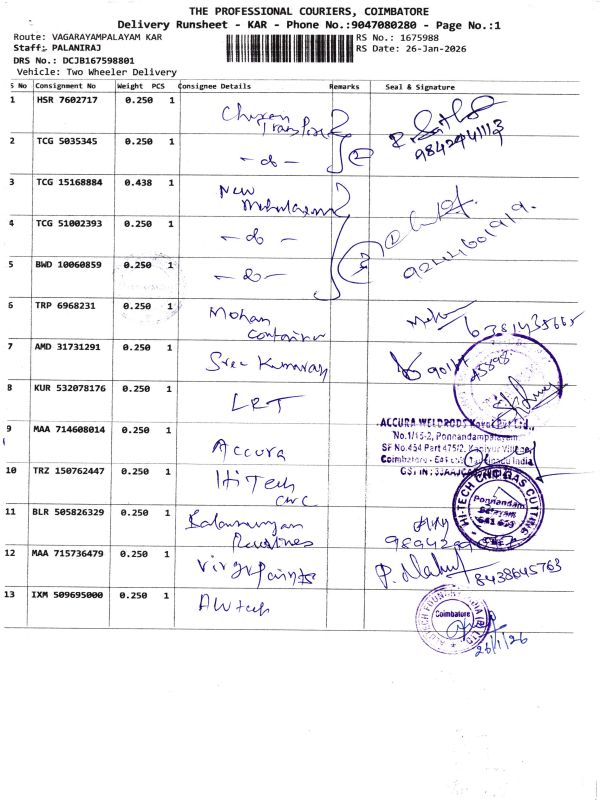 THE PROFESSIONAL COURIERS, COIMBATORE
Delivery Runsheet - KAR - Phone No.:9047080280 - Page No.:1
Route: VAGARAYAMPALAYAM KAR
RS No.: 1675988
Staff: PALANIRAJ
RS Date: 26-Jan-2026
DRS No.: DCJB167598801
Vehicle: Two Wheeler Delivery
S No Consignment No Weight PCS Consignee Details Remarks Seal & Signature
1 HSR 7602717 0.250 1
9842941113
2 TCG 5035345 0.250 1 - do - 2
3 TCG 15168884 0.438 1 New
4 TCG 51002393 0.250 1 - do -
9244601919.
5 BWD 10060859 0.250 1 - do -
6 TRP 6968231 0.250 1 Mohan
Container
7 AMD 31731291 0.250 1 Sree Kumaran
8 KUR 532078176 0.250 1 LRT
9 MAA 714608014 0.250 1 Accura
ACCURA WELDRODS Kovai Pvt Ltd.,
No.1/15-2, Ponnandampalayam
SF No.454 Part 475/2, Kaniyur Village
Coimbatore - Tamilnadu India
10 TRZ 150762447 0.250 1 Hi Tech
CNC
HI-TECH CNC GAS CUTTING
Ponnandam
Palayam
641 659
11 BLR 505826329 0.250 1 Balamurugan
12 MAA 715736479 0.250 1 Virgo Paints
8438645763
13 IXM 509695000 0.250 1 Alutech
Coimbatore
26/1/26